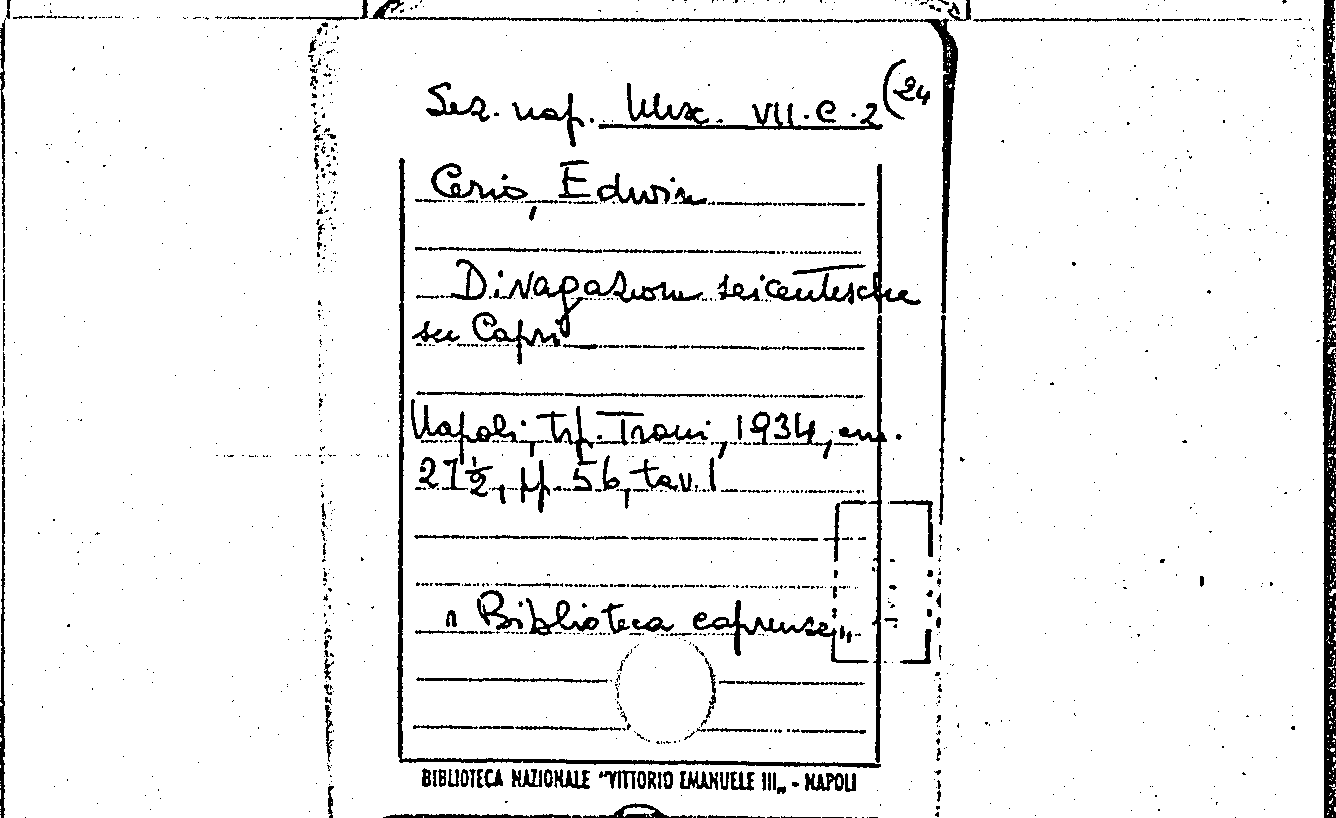 Sez. nap. Misc. VII.C.2(24
Cerio, Edwin
Divagazioni seicentesche
su Capri
Napoli, tip. Trani, 1934, cm.
27½, pp. 56, tav. 1
"Biblioteca caprense„
BIBLIOTECA NAZIONALE "VITTORIO EMANUELE III„ - NAPOLI